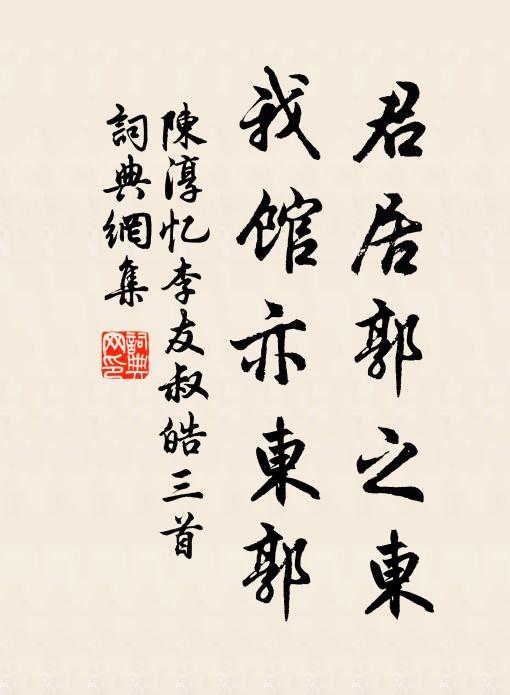 君居郭之東
我馆亦東郭
陳淳忆李友叔皓三首
詞典網集
詞典网印